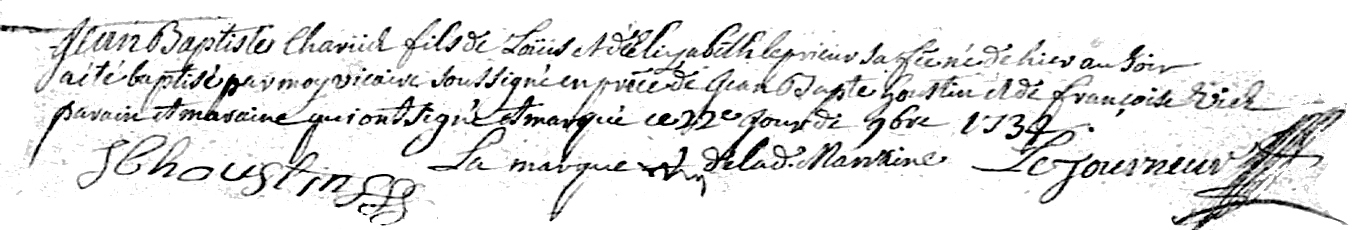 Jean Baptiste Chariuet fils de Loüis et d'Elizabeth leprieur sa fée né de hier au soir
a été baptisé par moy vicaire soussigné en prêce de Jean Bapte houstin et de françoise
parain et maraine qui ont signé et marqué ce 22e jour de 9bre 1734.
JBhoustin La marque de lad. Marraine Le Journeur